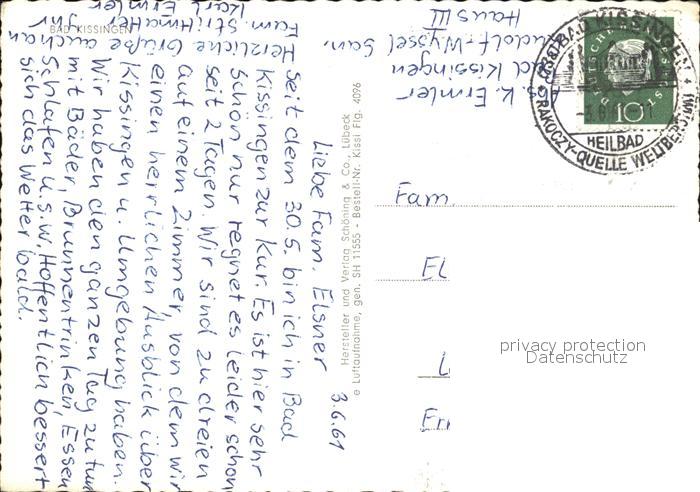 BAD KISSINGEN
3.6.61
Liebe Fam. Elsner
seit dem 30.5. bin ich in Bad
Kissingen zur Kur. Es ist hier sehr
schön nur regnet es leider schon
seit 2 Tagen. Wir sind zu dreien
auf einem Zimmer, von dem wir
einen herrlichen Ausblick über
Kissingen u. Umgebung haben.
Wir haben den ganzen Tag zu tun
mit Bäder, Brunnentrinken, Essen
Schlafen u.s.w. Hoffentlich bessert
sich das Wetter bald.
Herzliche Grüße auch an
Fam. Strittmatter
Ihr
Karl Ermler
Abs. K. Ermler
Bad Kissingen
Rudolf-Wissel San.
Haus III
Hersteller und Verlag Schöning & Co., Lübeck
Luftaufnahme, gen. SH 11555 - Bestell-Nr. Kissi Flg. 4096
BAD KISSINGEN
HEILBAD
RAKOCZY-QUELLE WELTBERÜHMT
DEUTSCHE BUNDESPOST
10
Fam.
El
privacy protection
Datenschutz